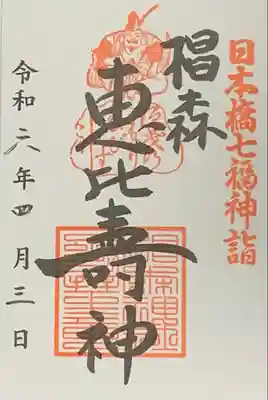 日本橋七福神詣
椙森
恵比壽神
令和六年四月三日